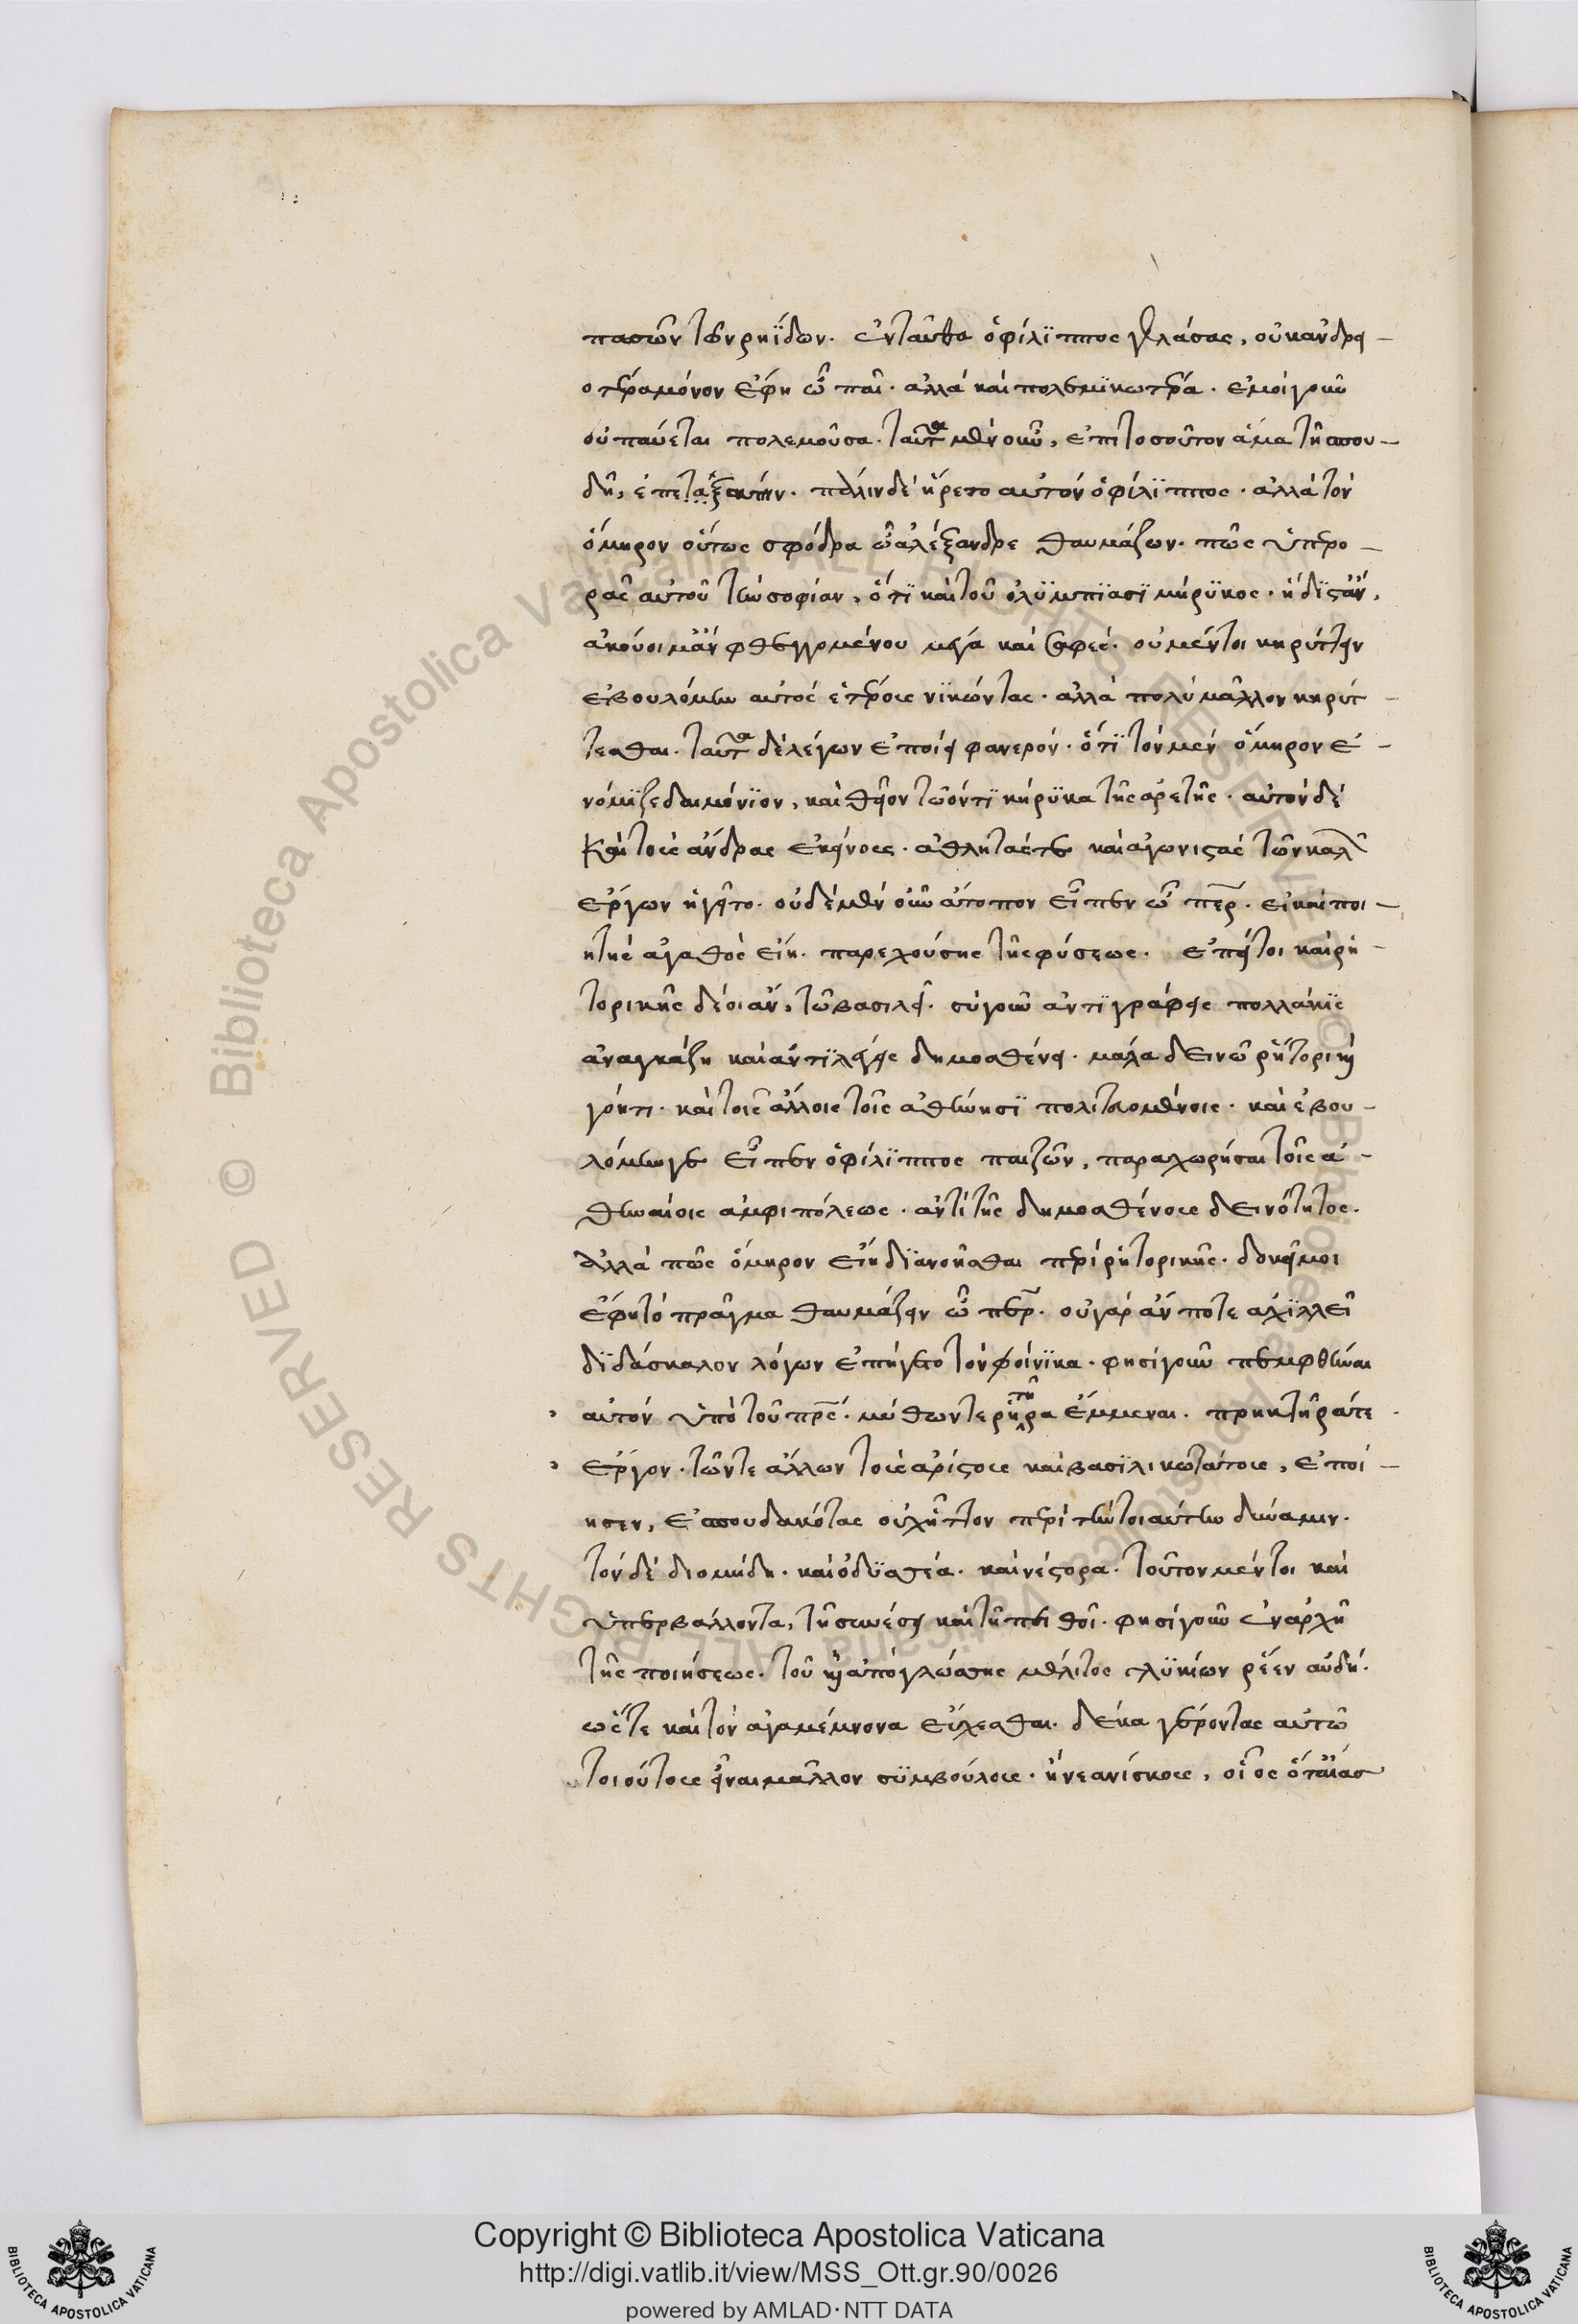 πασῶν τῶν ρηΐδων. ἐνταῦθα ὁ φίλϊππος γελάσας, οὐκ ανδρει-
οτέρα μόνον ἔφη ὦ παῖ. αλλά καὶ πολεμϊκωτέρα. ἐμοὶ γοῦν
οὐ παύεται πολεμοῦσα. ταῦτα μὲν οὖν, ἐπι τοσοῦτον ἅμα τῆ σπου-
δῆ, πάλιν δὲ ἤρετο αυτὸν ὁ φίλϊππος. αλλὰ τὸν
ὅμηρον οὕτως σφόδρα ὦ αλέξανδρε θαυμάζων. πῶς ὑπερο-
ρᾶς αὐτοῦ τὴν σοφίαν, ὅτϊ καὶ τοῦ ολϋμπϊασϊ κήρϋκος. ἥδϊστ' ἂν,
ακούοιμ' ἂν φθεγγομένου μέγα καὶ σαφές. οὐ μέντοι κηρύττειν
εβουλόμην αὐτὸς ἑτέρους νϊκῶντας. αλλὰ πολὺ μᾶλλον κηρύτ-
τεσθαι. ταῦτα δὲ λέγων ἐποίει φανερὸν. ὅτϊ τὸν μὲν ὅμηρον ἐ-
νόμϊζε δαιμόνϊον, καὶ θεῖον τῶ ὄντϊ κήρϋκα τῆς ἀρετῆς. αυτὸν δὲ
καὶ τοὺς ἄνδρας ἐκείνους. ἀθλητάς τε καὶ αγωνιστὰς τῶν καλῶν
ἔργων ἡγεῖτο. οὐδὲ μὲν οὖν ἄτοπον εἶπεν ὦ πάτερ. ει καὶ ποι-
ητὴς αγαθὸς εἴη. παρεχούσης τῆς φύσεως. ἐπεί τοι καὶ ρη-
τορικῆς δέοι ἂν, τῶ βασιλεῖ. σὺ γοῦν αντϊγράφεις πολλάκϊς
ἀναγκάζη καὶ ἀντϊλέγεις δημοσθένει. μάλα δεινῶ ρήτορι καὶ
γόητι. καὶ τοῖς ἄλλοις τοῖς αθήνησϊ πολιτευομένοις. καὶ ἐβου-
λόμην γε εἶπεν ὁ φίλϊππος παίζων, παραχωρῆσαι τοῖς ἀ-
θηναίοις αμφιπόλεως. ἀντὶ τῆς δημοσθένους δεινότητος.
αλλὰ πῶς ὅμηρον εἴη δϊανοεῖσθαι περὶ ρητορικῆς. δοκεῖ μοι
ἔφη τὸ πρᾶγμα θαυμάζειν ὦ πάτερ. οὐ γὰρ ἄν ποτε αχϊλλεῖ
δϊδάσκαλον λόγων ἐπήγετο τὸν φοίνϊκα. φησὶ γοῦν πεμφθῆναι
αυτόν ὑπὸ τοῦ πατρός. μύθων τε ρητῆρα ἔμμεναι. πρηκτῆρά τε
ἔργον. τῶν τε ἄλλων τοὺς αρίστους καὶ βασϊλικωτάτους, ἐποί-
ησεν, ἐσπουδακότας οὐχ ἧττον περὶ τὴν τοιαύτην δύναμιν.
τὸν δὲ διομήδη. καὶ ὀδϋσσέα. καὶ νέστορα. τοῦτον μέντοι καὶ
ὑπερβάλλοντα, τῆ συνέσει καὶ τῆ πειθοῖ. φησὶ γοῦν ἐν ἀρχῆ
τῆς ποιήσεως. τοῦ καὶ ἀπὸ γλώσσης μέλιτος γλϋκίων ρέεν αὐδή.
ὥστε καὶ τὸν αγαμέμνονα εὔχεσθαι. δέκα γέροντας αὐτῶ
τοιούτους εἶναι μᾶλλον σϋμβούλους. ἢ νεανίσκους, οἷος ὅτ' αἴασ